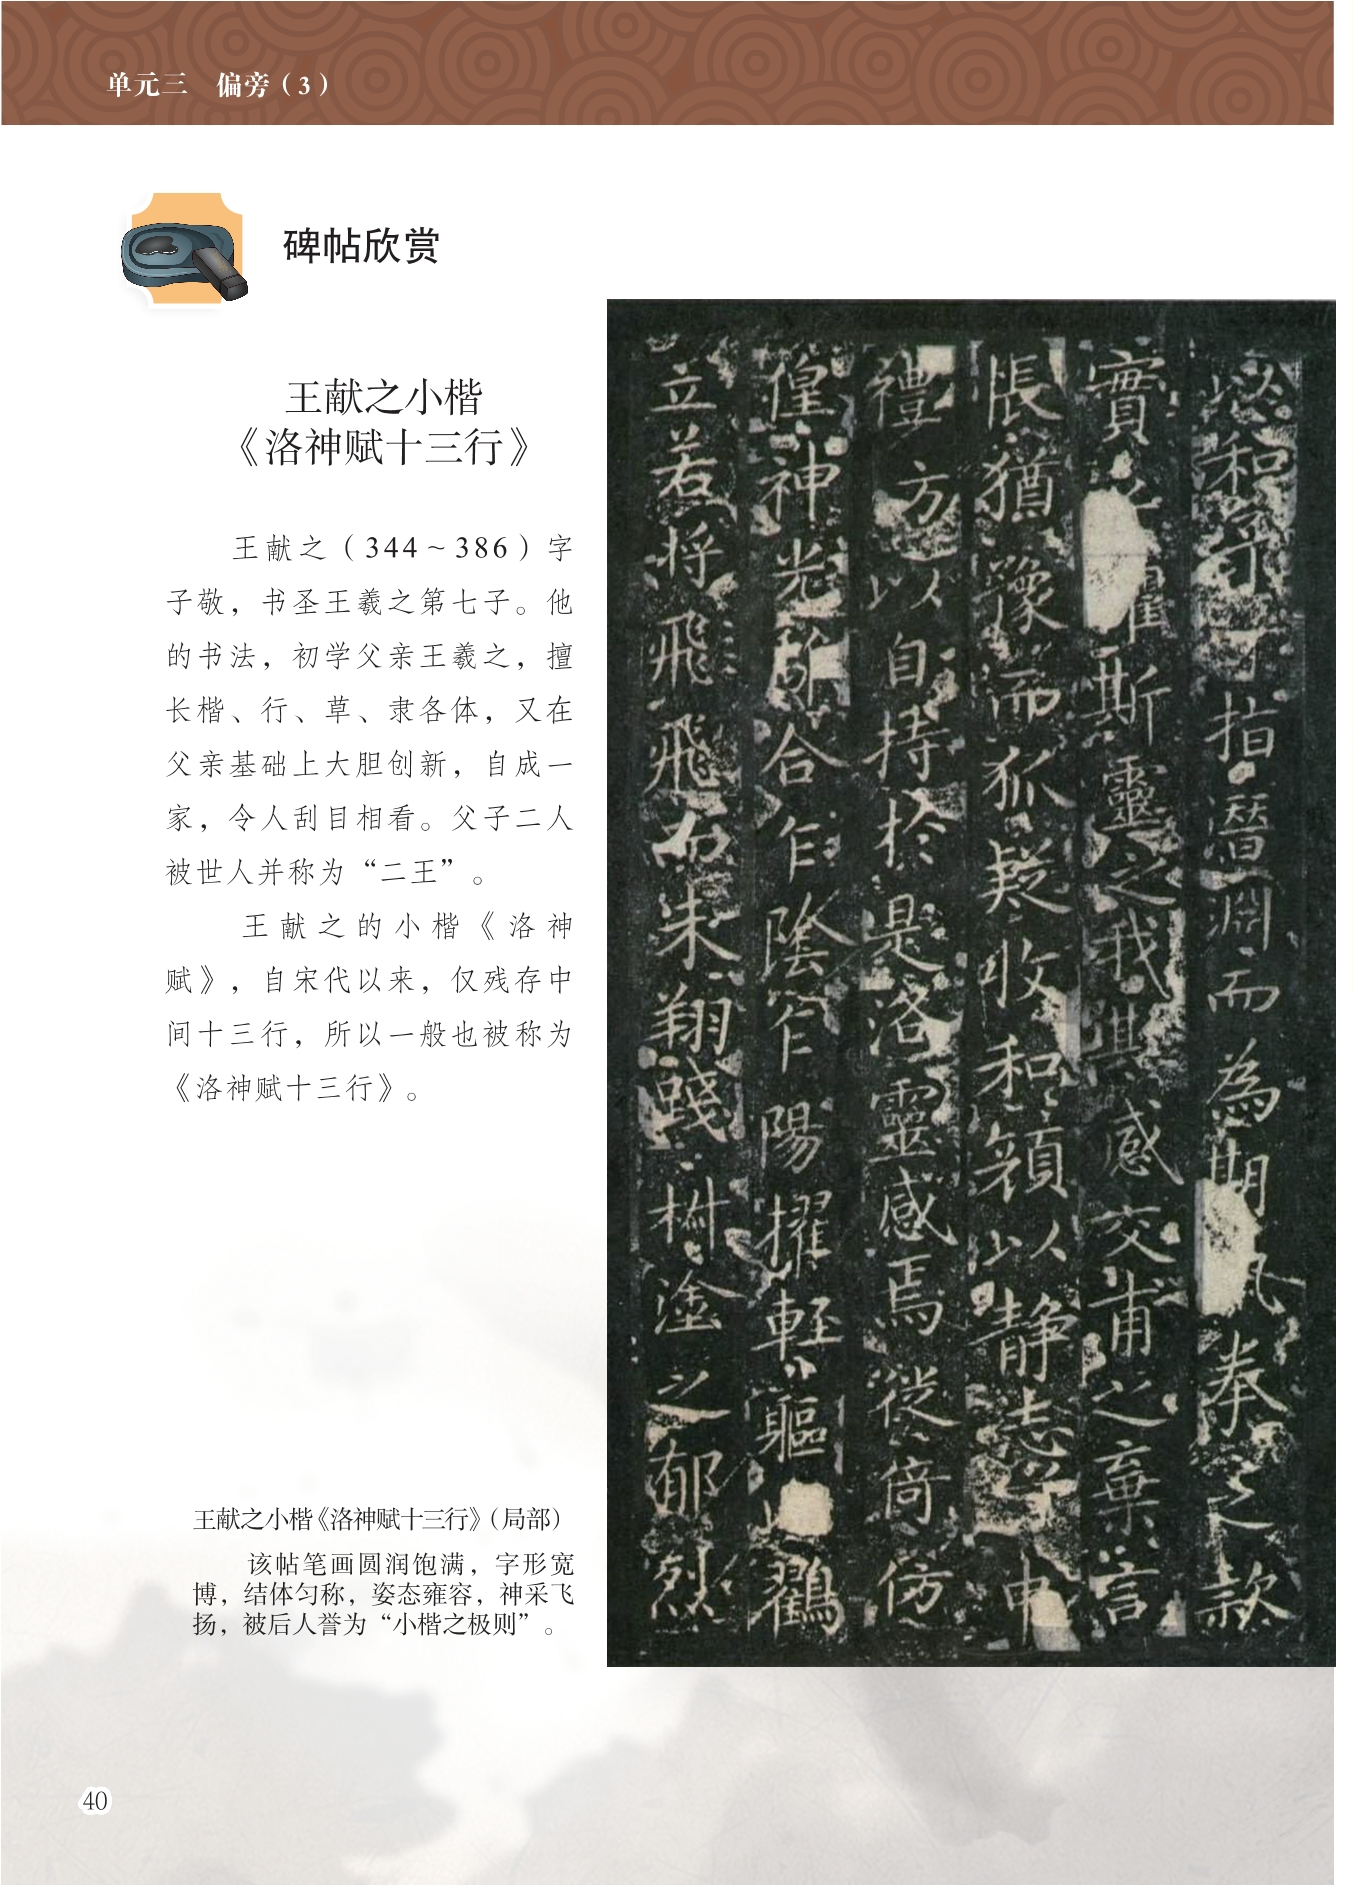 单元三 偏旁（3）
碑帖欣赏
王献之小楷
《洛神赋十三行》
王献之（344～386）字
子敬，书圣王羲之第七子。他
的书法，初学父亲王羲之，擅
长楷、行、草、隶各体，又在
父亲基础上大胆创新，自成一
家，令人刮目相看。父子二人
被世人并称为“二王”。
王献之的小楷《洛神
赋》，自宋代以来，仅残存中
间十三行，所以一般也被称为
《洛神赋十三行》。
和予兮指潛淵而為期拳之款
實斯靈之我感交甫之棄言
悵猶豫而狐疑收和顏以靜志兮申
禮方以自持於是洛靈感焉徙倚仿
偟神光離合乍陰乍陽擢輕軀鸖
立若將飛而未翔踐樹塗之郁烈
王献之小楷《洛神赋十三行》（局部）
该帖笔画圆润饱满，字形宽
博，结体匀称，姿态雍容，神采飞
扬，被后人誉为“小楷之极则”。
40